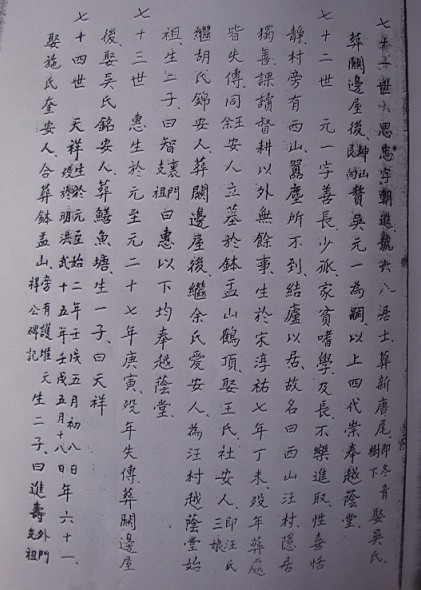 七十一世 思忠字朝進號六八居士、葬新唐尾、即冬青樹下 娶吳氏、
葬闗邊屋後、坤山艮向 贅吳元一為嗣、以上四代崇奉越蔭堂、
七十二世 元一字善長、少孤、家貧嗜學、及長不樂進取、性喜恬
靜、村旁有西山、囂塵所不到、結廬以居、故名曰西山汪村、隱居
獨善、課讀督耕以外、無餘事、生於宋淳祐七年丁未、歿年葬處
皆失傳、同鈺安人立墓於鉢盂山鶴頂、娶王氏社安人、即汪氏三娘
繼胡氏錦安人、葬闗邊屋後、繼余氏愛安人、為汪村越蔭堂始
祖、生二子、曰智裏門支祖曰惠以下均奉越蔭堂、
七十三世 惠生於元至元二十七年庚寅、歿年失傳、葬闗邊屋
後、娶吳氏銘安人、葬鱔魚塘、生一子、曰天祥
七十四世 天祥生於元至始二年壬戌五月初八日歿於明洪武十五年壬戌五月十八日年六十一、
娶施氏奎安人、合葬鉢盂山、旁有護堆天祥公碑記 生二子、曰進壽外門支祖